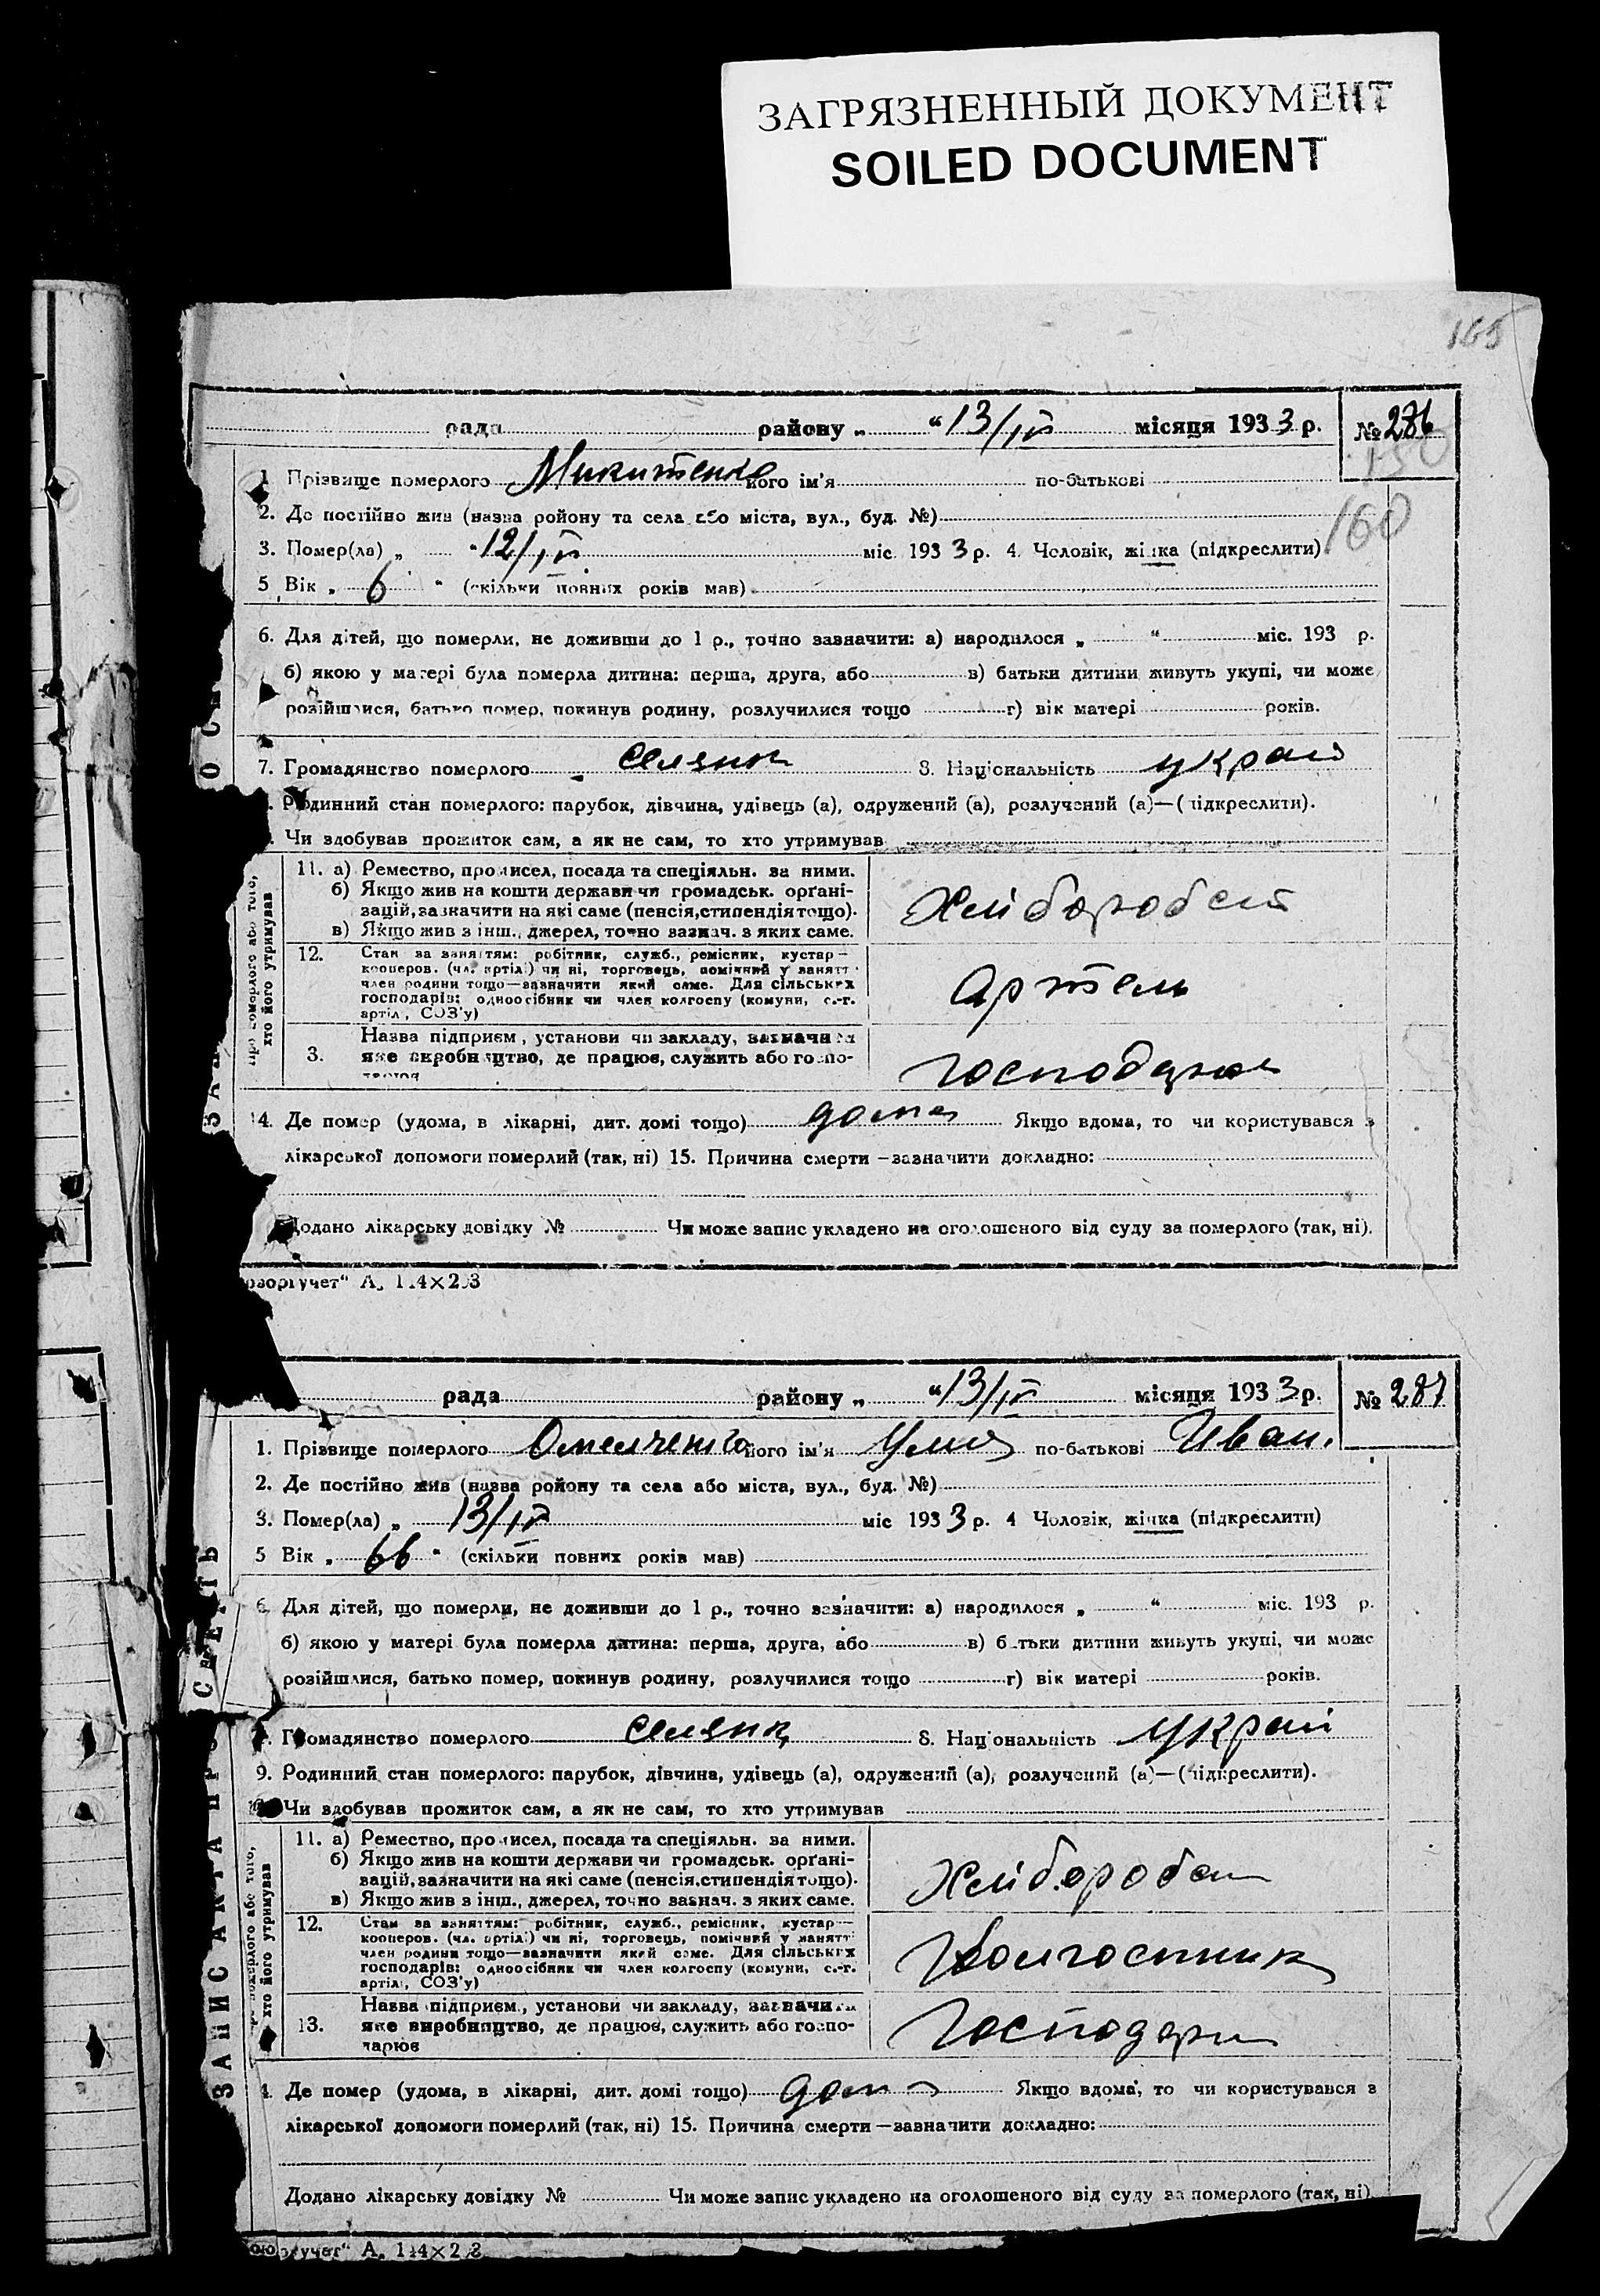 ЗАГРЯЗНЕННЫЙ ДОКУМЕНТ
SOILED DOCUMENT
165
рада району „ “ 13/IV місяця 1933 р. № 286
150
1 Прізвище померлого Микитенко його ім'я по-батькові
2. Де постійно жив (назва району та села або міста, вул., буд. №)
160
3. Помер(ла) „ “ 12/IV міс. 193 3 р. 4. Чоловік, жінка (підкреслити)
5 Вік „ 6 “ (скільки повних років мав)
6. Для дітей, що померли, не доживши до 1 р., точно зазначити: а) народилося „ “ міс. 193 р.
б) якою у матері була померла дитина: перша, друга, або в) батьки дитини живуть укупі, чи може
розійшлися, батько помер, покинув родину, розлучилися тощо г) вік матері років.
7. Громадянство померлого селянин 8. Національність украї
Родинний стан померлого: парубок, дівчина, удівець (а), одружений (а), розлучений (а)—(підкреслити).
Чи здобував прожиток сам, а як не сам, то хто утримував
Про померлого або того, хто його утримував
11. а) Ремество, промисел, посада та спеціяльн. за ними.
б) Якщо жив на кошти держави чи громадськ. орґані-
зацій, зазначити на які саме (пенсія, стипендія тощо).
в) Якщо жив з інш. джерел, точно зазнач. з яких саме.
Хліборобст
12. Стан за заняттям: робітник, служб., ремісник, кустар—
кооперов. (чл. артілі) чи ні, торговець, помічний у занятт
член родини тощо—зазначити який саме. Для сільських
господарів: одноосібник чи член колгоспу (комуни, с.-г.
артіл., СОЗ'у)
Артель
3. Назва підприєм., установи чи закладу, зазначити
яке виробництво, де працює, служить або госпо-
дарює
14. Де помер (удома, в лікарні, дит. домі тощо) дома Якщо вдома, то чи користувався з
лікарської допомоги померлий (так, ні) 15. Причина смерти—зазначити докладно:
Додано лікарську довідку № Чи може запис укладено на оголошеного від суду за померлого (так, ні).
оргучет“ А
рада району „ “ 13/IV місяця 193 3 р. № 287
1. Прізвище померлого Омелченко його ім'я Улия по-батькові Иван.
2. Де постійно жив (назва району та села або міста, вул., буд. №)
3. Помер(ла) „ 13/IV міс 193 3 р. 4 Чоловік, жінка (підкреслити)
5 Вік „ 66 “ (скільки повних років мав)
6. Для дітей, що померли, не доживши до 1 р., точно зазначити: а) народилося „ “ міс. 193 р.
б) якою у матері була померла дитина: перша, друга, або в) батьки дитини живуть укупі, чи може
розійшлися, батько помер, покинув родину, розлучилися тощо г) вік матері років.
Громадянство померлого селянка 8. Національність украї
9. Родинний стан померлого: парубок, дівчина, удівець (а), одружений (а), розлучений (а)—(підкреслити).
Чи здобував прожиток сам, а як не сам, то хто утримував
ЗАПИС АКТА ПРО СМЕРТЬ
померлого або того, хто його утримував
11. а) Ремество, промисел, посада та спеціяльн. за ними.
б) Якщо жив на кошти держави чи громадськ. орґані-
зацій, зазначити на які саме (пенсія, стипендія тощо).
в) Якщо жив з інш., джерел, точно зазнач. з яких саме.
Хлібороб
12. Стан за заняттям: робітник, служб., ремісник, кустар—
кооперов. (чл. артілі) чи ні, торговець, помічний у занятт
член родини тощо—зазначити який саме. Для сільських
господарів: одноосібник чи член колгоспу (комуни, с.-г.
артіл., СОЗ'у)
Колгоспник
13. Назва підприєм., установи чи закладу, зазначити
яке виробництво, де працює, служить або госпо-
дарює
Де помер (удома, в лікарні, дит. домі тощо) дома Якщо вдома, то чи користувався з
лікарської допомоги померлий (так, ні) 15. Причина смерти—зазначити докладно:
Додано лікарську довідку № Чи може запис укладено на оголошеного від суду за померлого (так, ні)
оргучет“ А